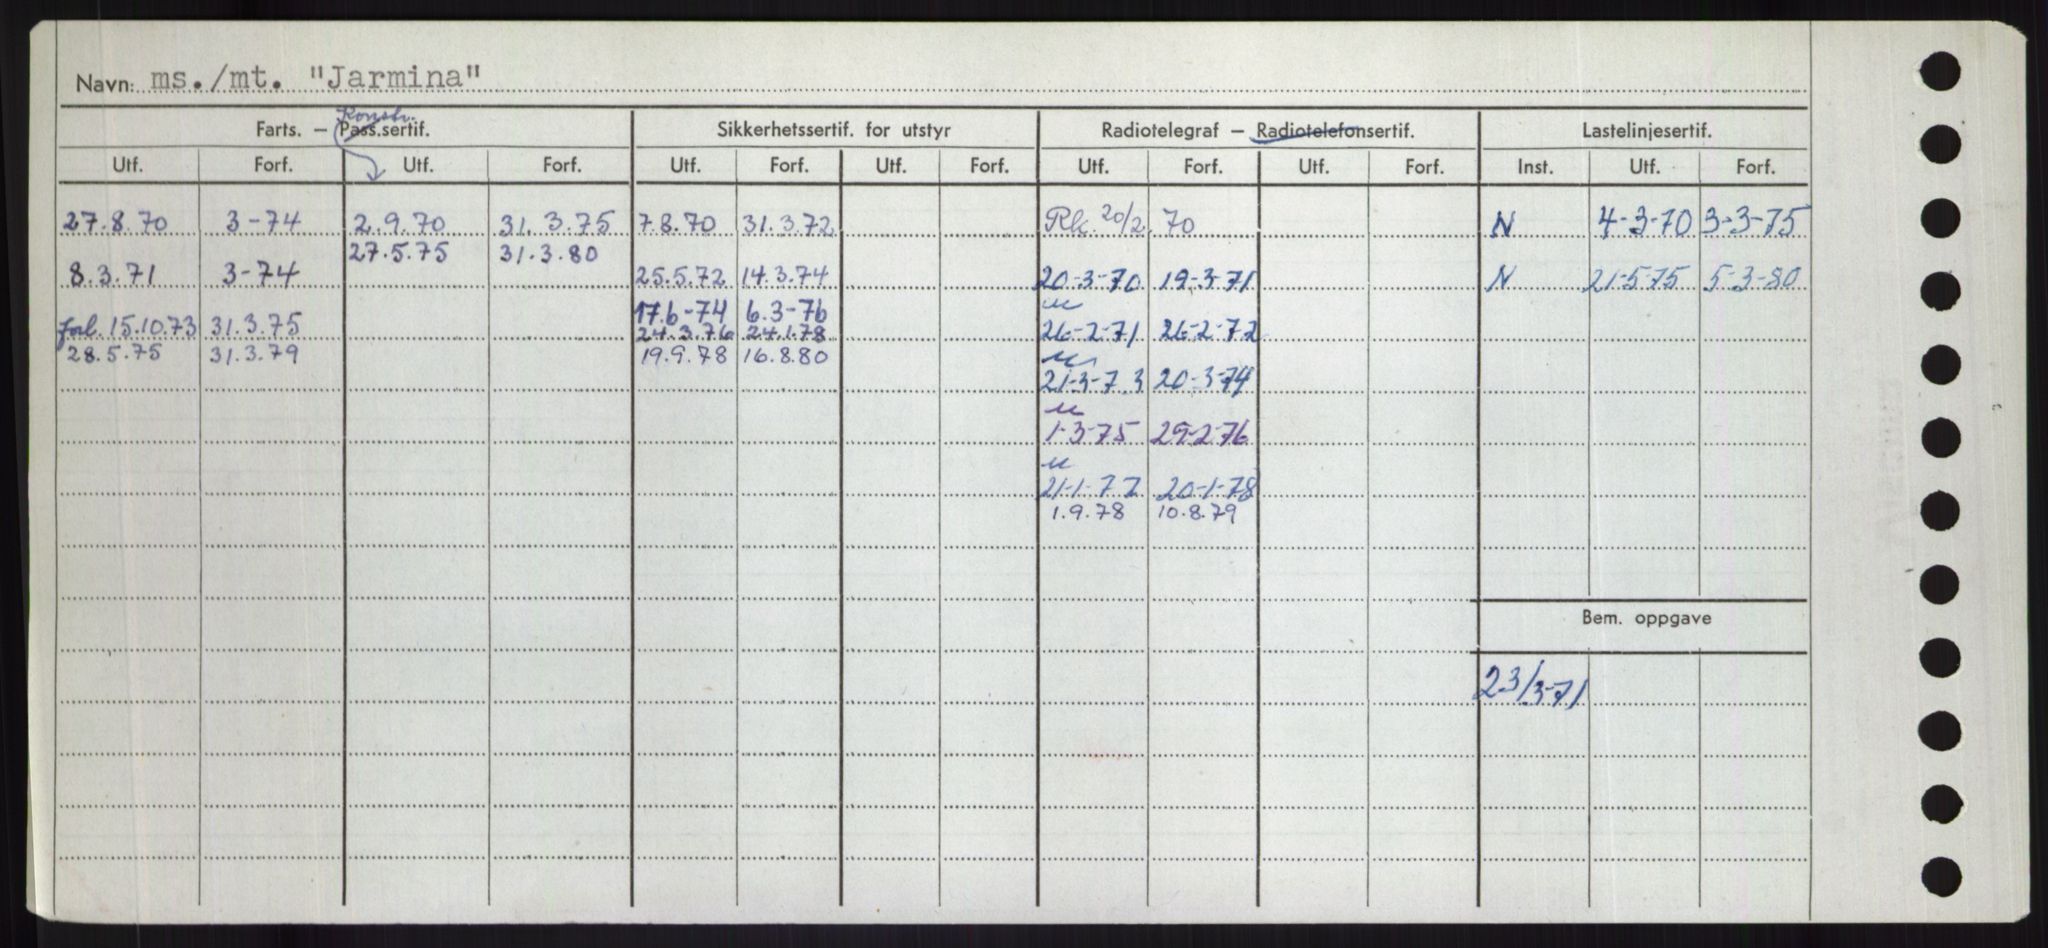 Navn: ms./mt. "Jarmina"
Konstr.
Farts. — Pass.sertif. Sikkerhetssertif. for utstyr Radiotelegraf — Radiotelefonsertif. Lastelinjesertif.
Utf. Forf. Utf. Forf. Utf. Forf. Utf. Forf. Utf. Forf. Utf. Forf. Inst. Utf. Forf.
27.8.70 3-74 2.9.70 31.3.75 7.8.70 31.3.72 Rk. 20/2 70 N 4-3-70 3-3-75
27.5.75 31.3.80
8.3.71 3-74 25.5.72 14.3.74 20-3-70 19-3-71 N 21-5-75 5-3-80
17.6-74 6.3-76
forl. 15.10.73 31.3.75 24.3.76 24.1.78 26-2-71 26-2-72
28.5.75 31.3.79 19.9.78 16.8.80
21-3-73 20-3-74
1-3-75 29-2-76
21-1-77 20-1-78
1.9.78 10.8.79
Bem. oppgave
23/3-71